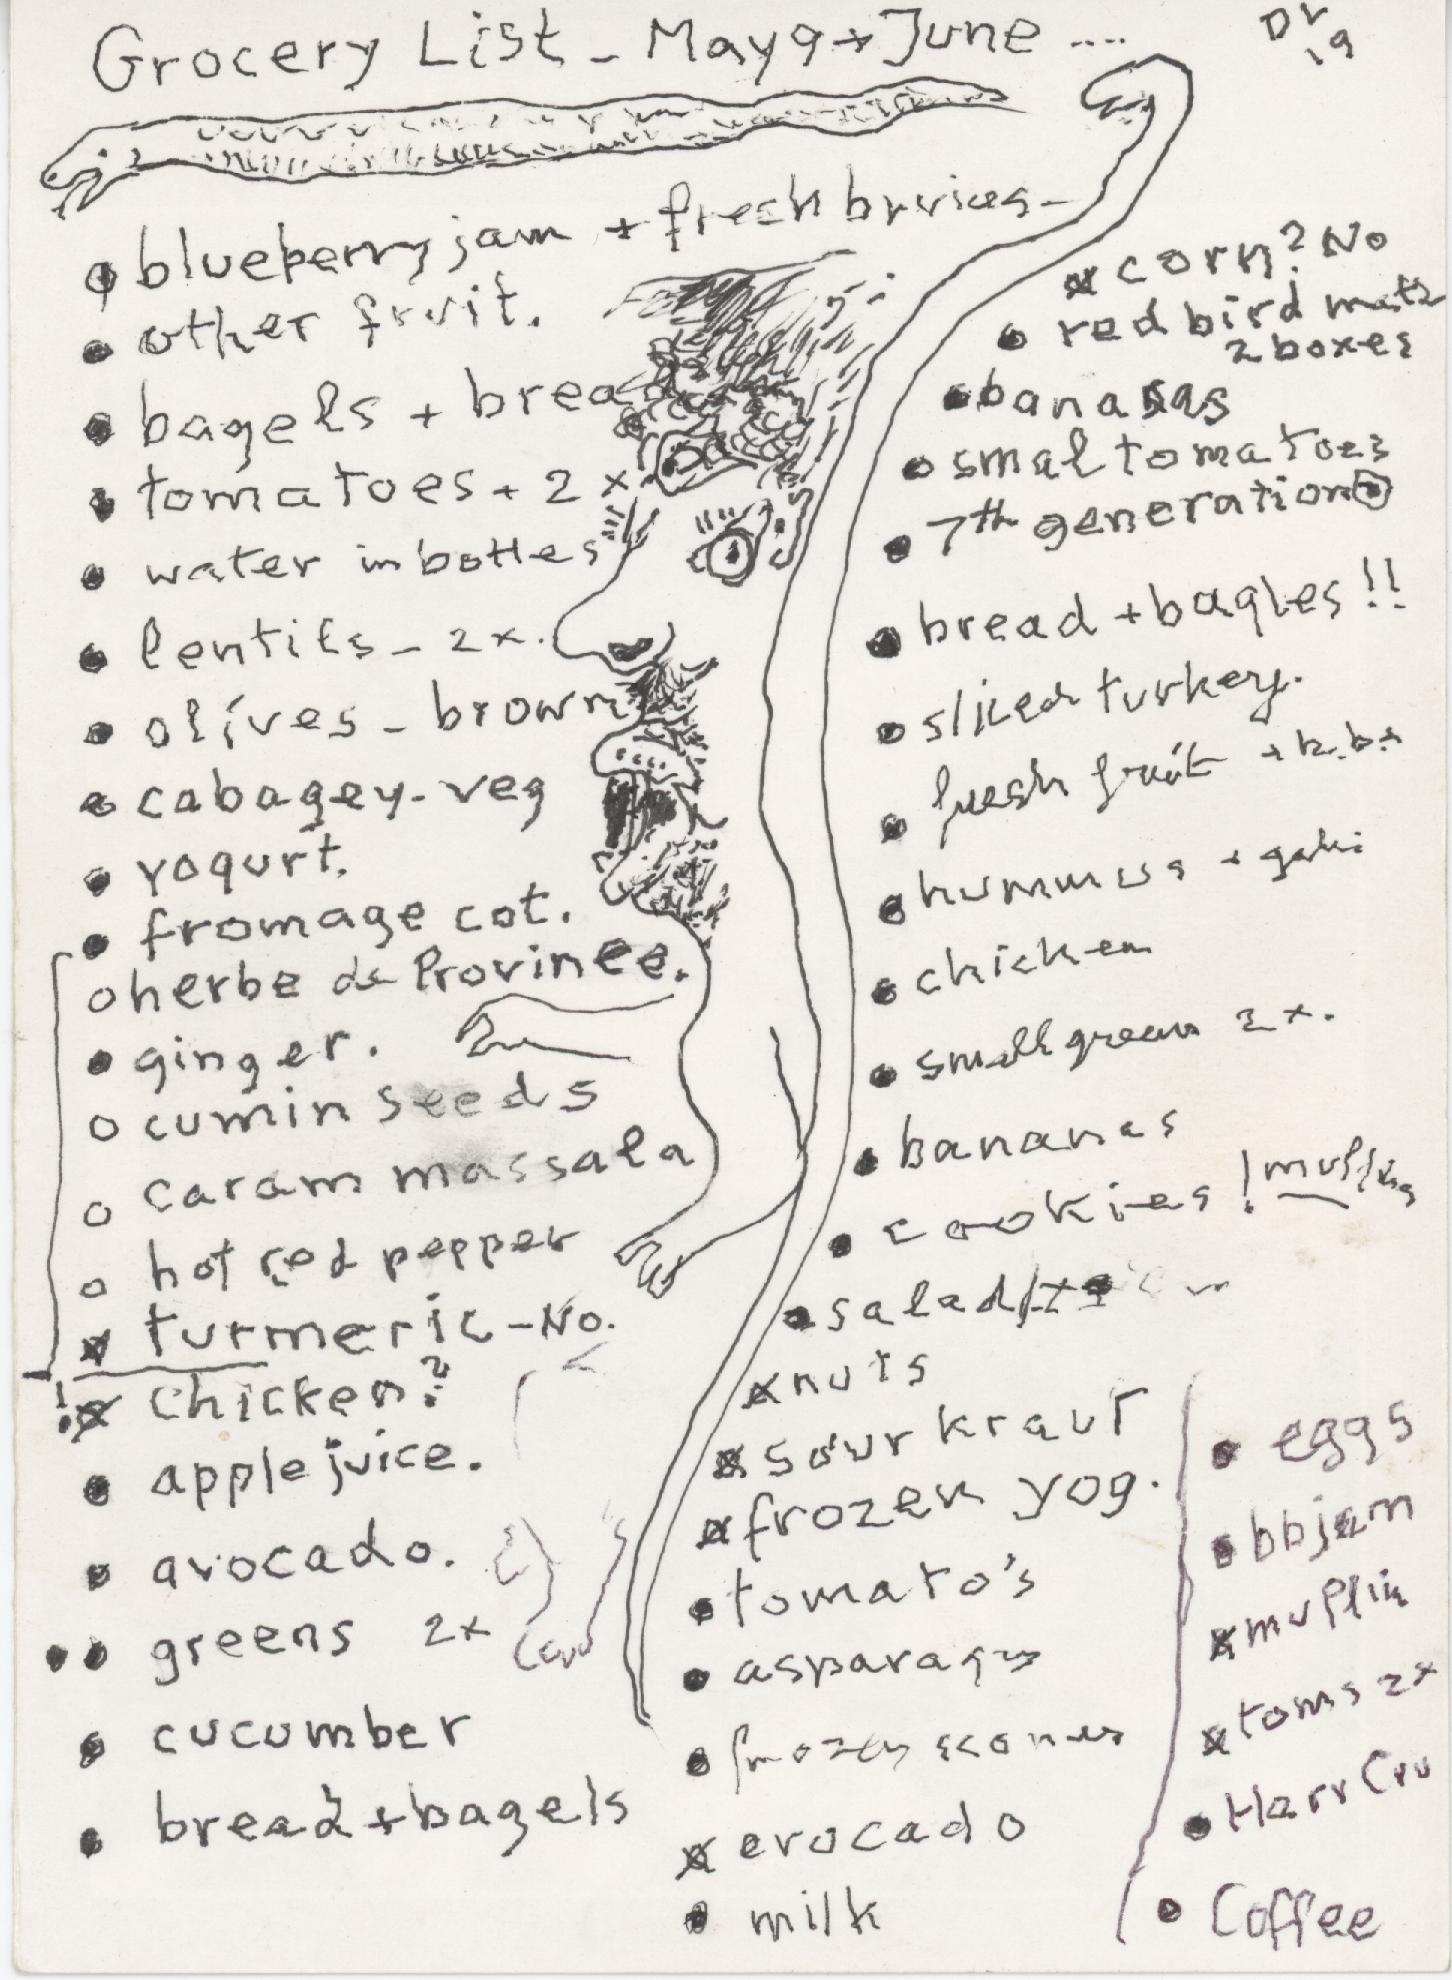 Grocery List - May 9 + June ....
DV
19
blueberry jam + fresh
other fruit.
bagels + bread
tomatoes + 2x
water in bottles
lentils - 2x.
olives - brown
cabagey. veg
yogurt.
fromage cot.
herbe de Provinee.
ginger.
cumin seeds
caram massala
hot red pepper
turmeric - No.
! chicken?
apple juice.
avocado.
greens 2x
cucumber
bread + bagels
corn? No
red bird
2 boxes
bananas
smal tomatoes
7th generation
bread + bagles!!
sliced turkey.
fresh fruit +
hummus +
chicken
small green 2x.
bananas
cookies! muffins
salad/
nuts
sour kraut
frozen yog.
tomato's
asparagus
frozen scones
evocado
milk
eggs
bbjam
muffin
toms 2x
Harr Cru
Coffee